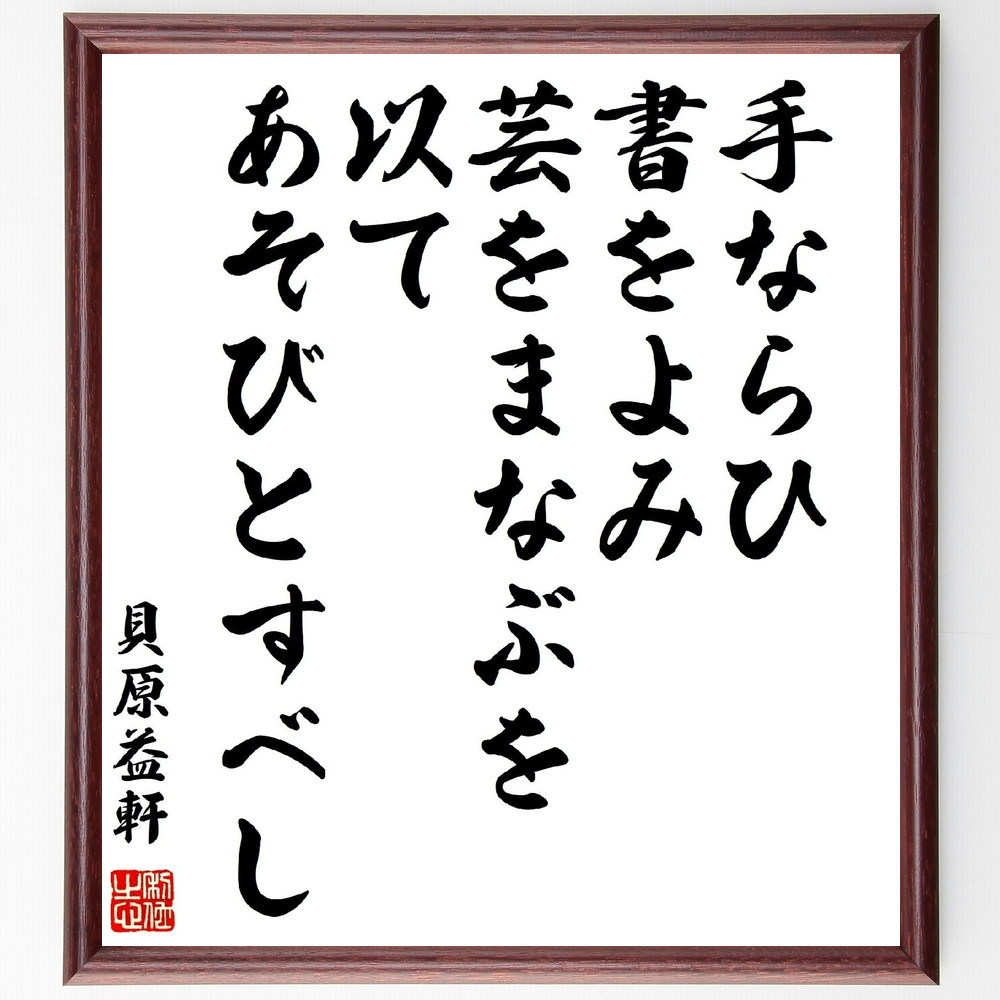 手ならひ
書をよみ
芸をまなぶを
以て
あそびとすべし
貝原益軒